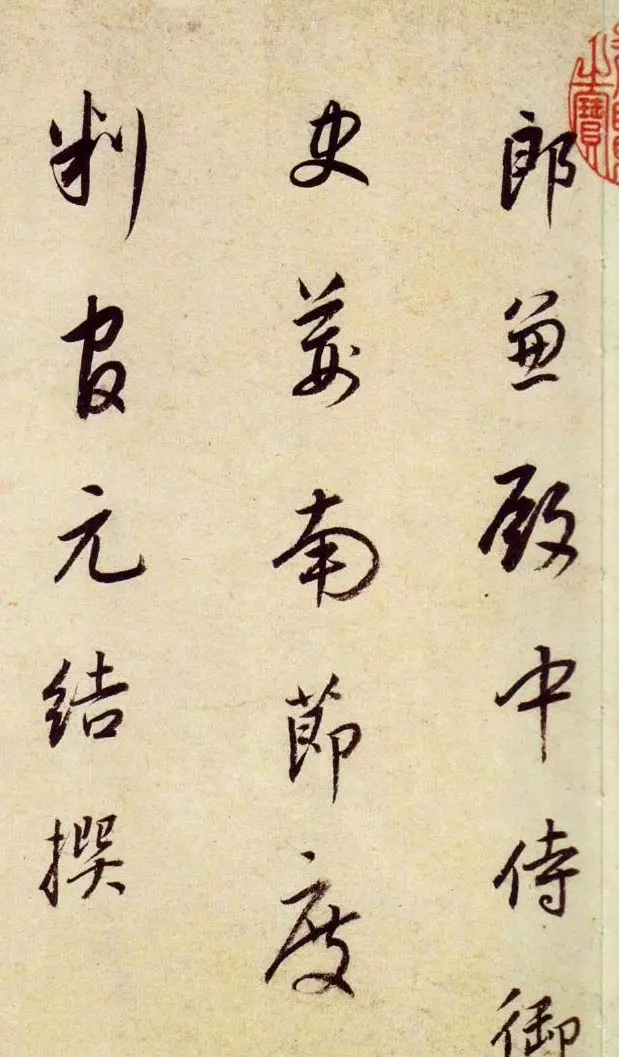 郎兼殿中侍御
史荊南節度
判官元結撰
之寶